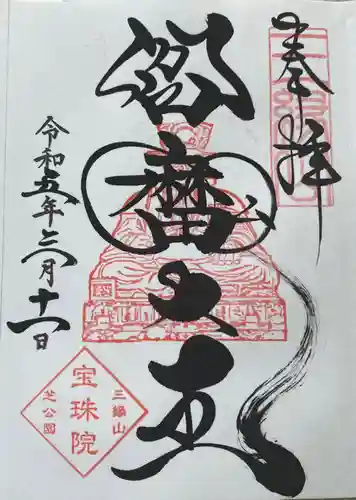 奉拝
閻魔大王
令和五年六月十一日
三縁山
宝珠院
芝公園